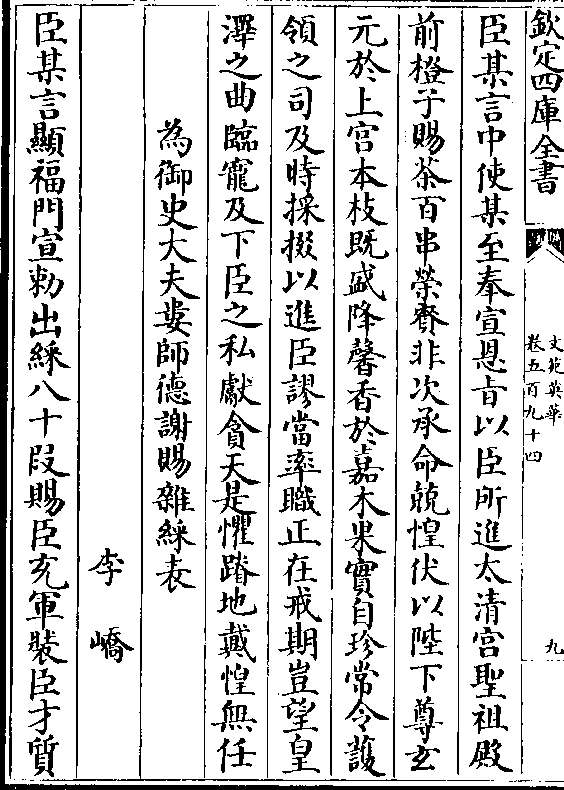 欽定四庫全書
文苑英華
卷五百九十四
九
臣某言中使某至奉宣恩旨以臣所進太清宫聖祖殿
前橙子賜茶百串榮賚非次承命兢惶伏以陛下尊玄
元於上宫本枝既盛降馨香於嘉木果實自珍常令䕶
領之司及時採掇以進臣謬當率職正在戒期豈望皇
澤之曲臨寵及下臣之私獻貪天是懼蹐地戴惶無任
為御史大夫婁師德謝賜雜綵表
李嶠
臣某言顯福門宣勑出綵八十叚賜臣充軍裝臣才質